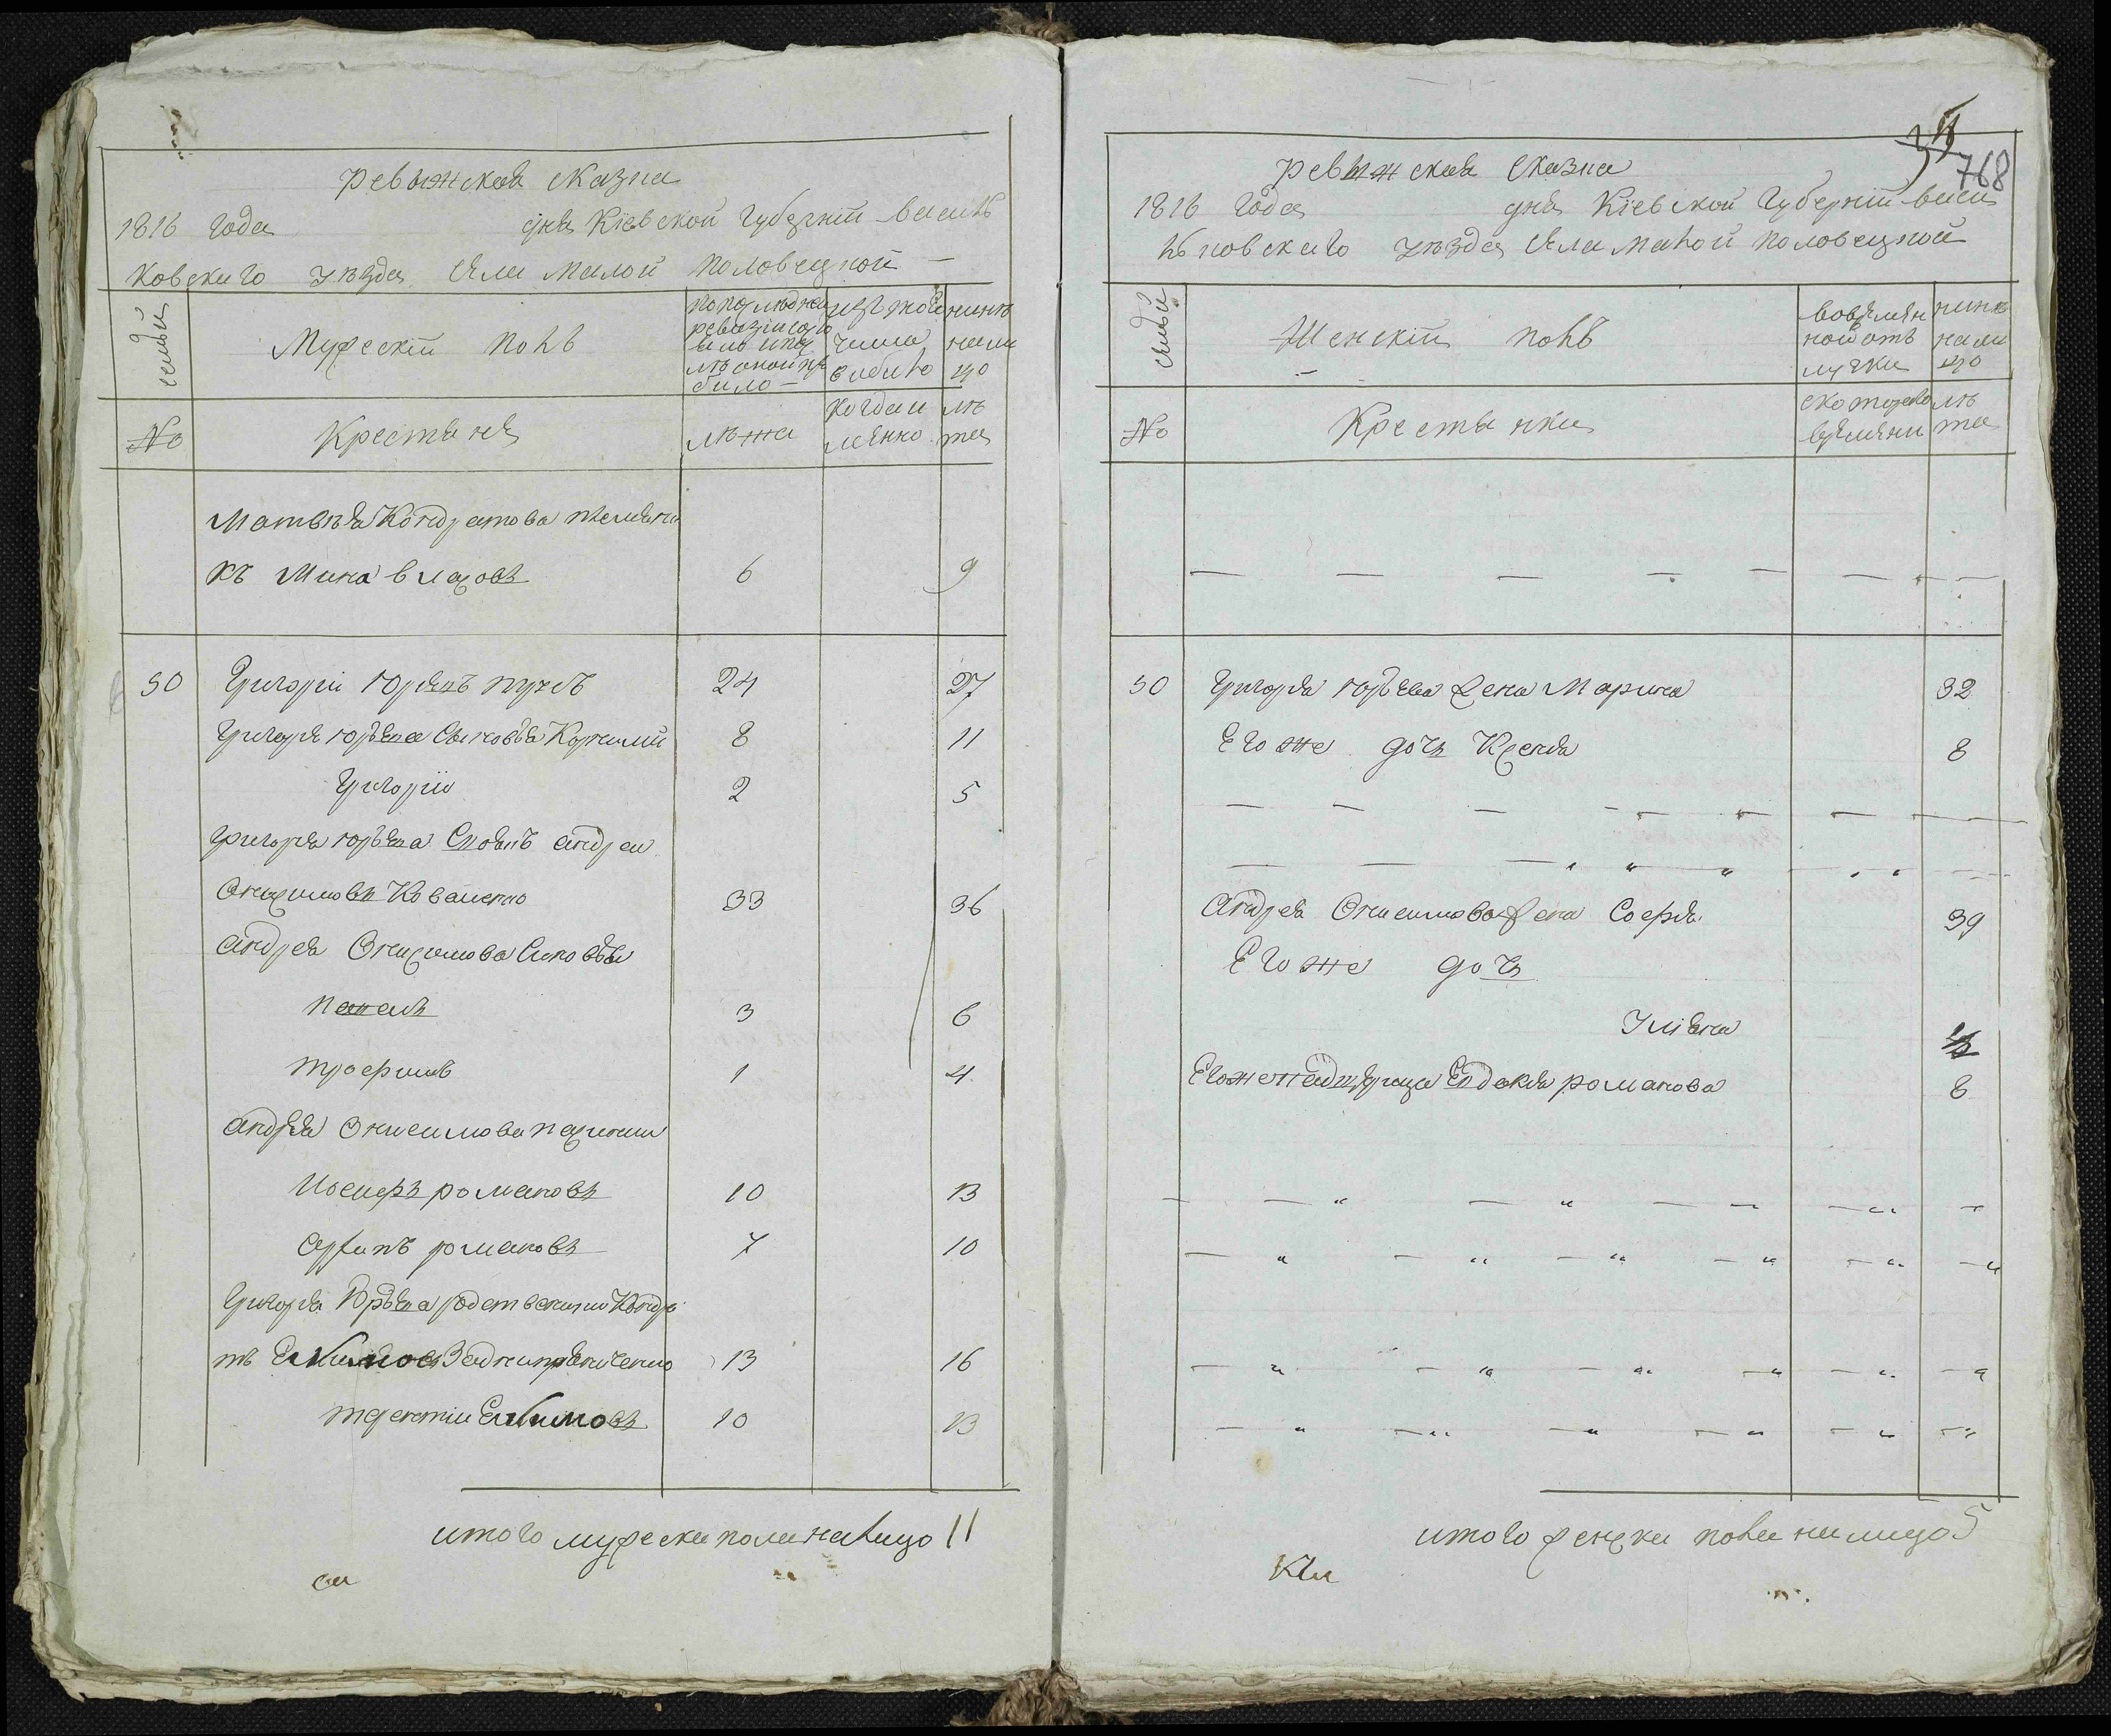 ревыжская сказка
1816 года дня Кіевской губерніи василь
ковскаго уѣзда села малой половецкой —
семьи
Мужескій полъ
по последней
ревизіи со
было и по
лѣ оной при
было —
изъ то
числа
выбило
нинѣ
нали
цо
№
Крестьяня
лѣта
когда и
мѣнно
лѣ
та
Матвѣя Кондратова племянни
къ Мина власовъ 6 9
50 Григорій Юрьевъ 24 27
Григорія юрьева Сыновья Корнилий 8 11
Григорій 2 5
Григорія юрьева андреи
Онисимовъ Коваленко 33 36
Андрея Онисимова Синовья
Павелъ 3 6
трофимъ 1 4
Андрея Онисимова пасинки
Иосифъ романовъ 10 13
Архипъ романовъ 7 10
Григорія Юрьева родственники Кондра
тъ Екимовъ Заднипряниченко 13 16
терентий Екимовъ 10 13
итого мужеска пола налицо 11
34
768
ревыжская сказка
1816 года дня Кіевской губерніи васи
льковскаго уѣзда села малой половецкой
семьи
Женскій полъ
вовремян
ной отъ
лучки
нинѣ
нали
цо
№
Крестьянки
скоторого
времяни
лѣ
та
50 Григорія юрьева жена Марина 32
Его же дочь Ксеня 8
Андрея Онисимова жена Софія 39
Его же дочъ
Уліяна
Егоже падщерица Евдокия романова 8
итого женска пола налицо 5